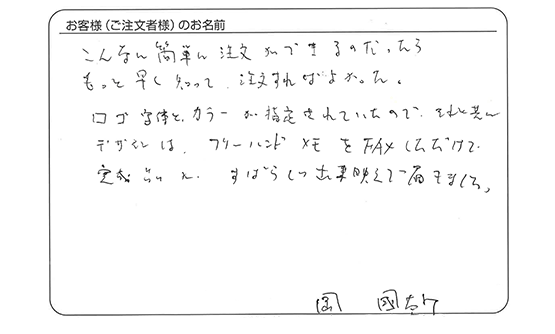 お客様（ご注文者様）のお名前
こんなに簡単に注文ができるのだったら
もっと早く知って、注文すればよかった。
ロゴ字体と、カラーが指定されていたので、それと
デザインは、フリーハンドメモをFAXしただけで
完成 すばらしい出来映えで届きました。